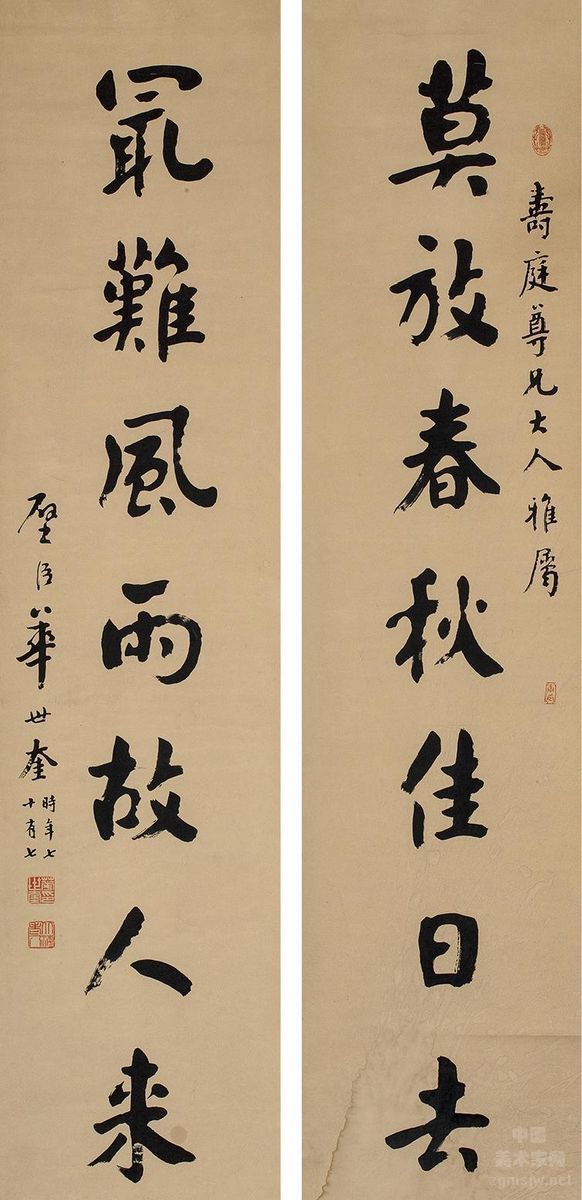 壽庭尊兄大人雅屬
莫放春秋佳日去
㝡難風雨故人來
璧臣華世奎
時年七
十有七
中国
美术家网
zgmsjw.net